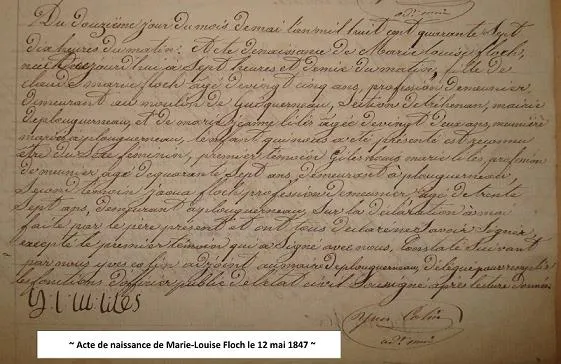 adj. mre
Du douzième jour du mois de mai l'an mil huit cent quarante Sept
dix heures du matin. Acte de naissance de Marie Louise floch,
née ce jourd'hui à Sept heures et demie du matin, fille de
claude marie floch âgé de vingt cinq ans, profession de meunier,
demeurant au moulin de Section de tréménan, mairie
de plouguerneau, et de marie jeanne liles âgée de vingt deux ans, meunière
mariés à plouguerneau, lenfant qui nous a été présenté est reconnu
être du Sexe féminin, premier témoin marie liles, profession
de meunier âgé de quarante Sept ans, demeurant à plouguerneau,
Second témoin floch profession de meunier âgé de trente
Sept ans, demeurant à plouguerneau, Sur la déclaration à nous
faite par le père présent et ont tous déclaré ne Savoir Signer,
excepté le premier témoin qui a Signé avec nous. Constaté Suivant
par nous yves Colin adjoint au maire de plouguerneau, délégué pour remplir
les fonctions d'officier public de l'état civil Soussigné après lecture donnée
liles
Yves Colin
adj. mre
~ Acte de naissance de Marie-Louise Floch le 12 mai 1847 ~